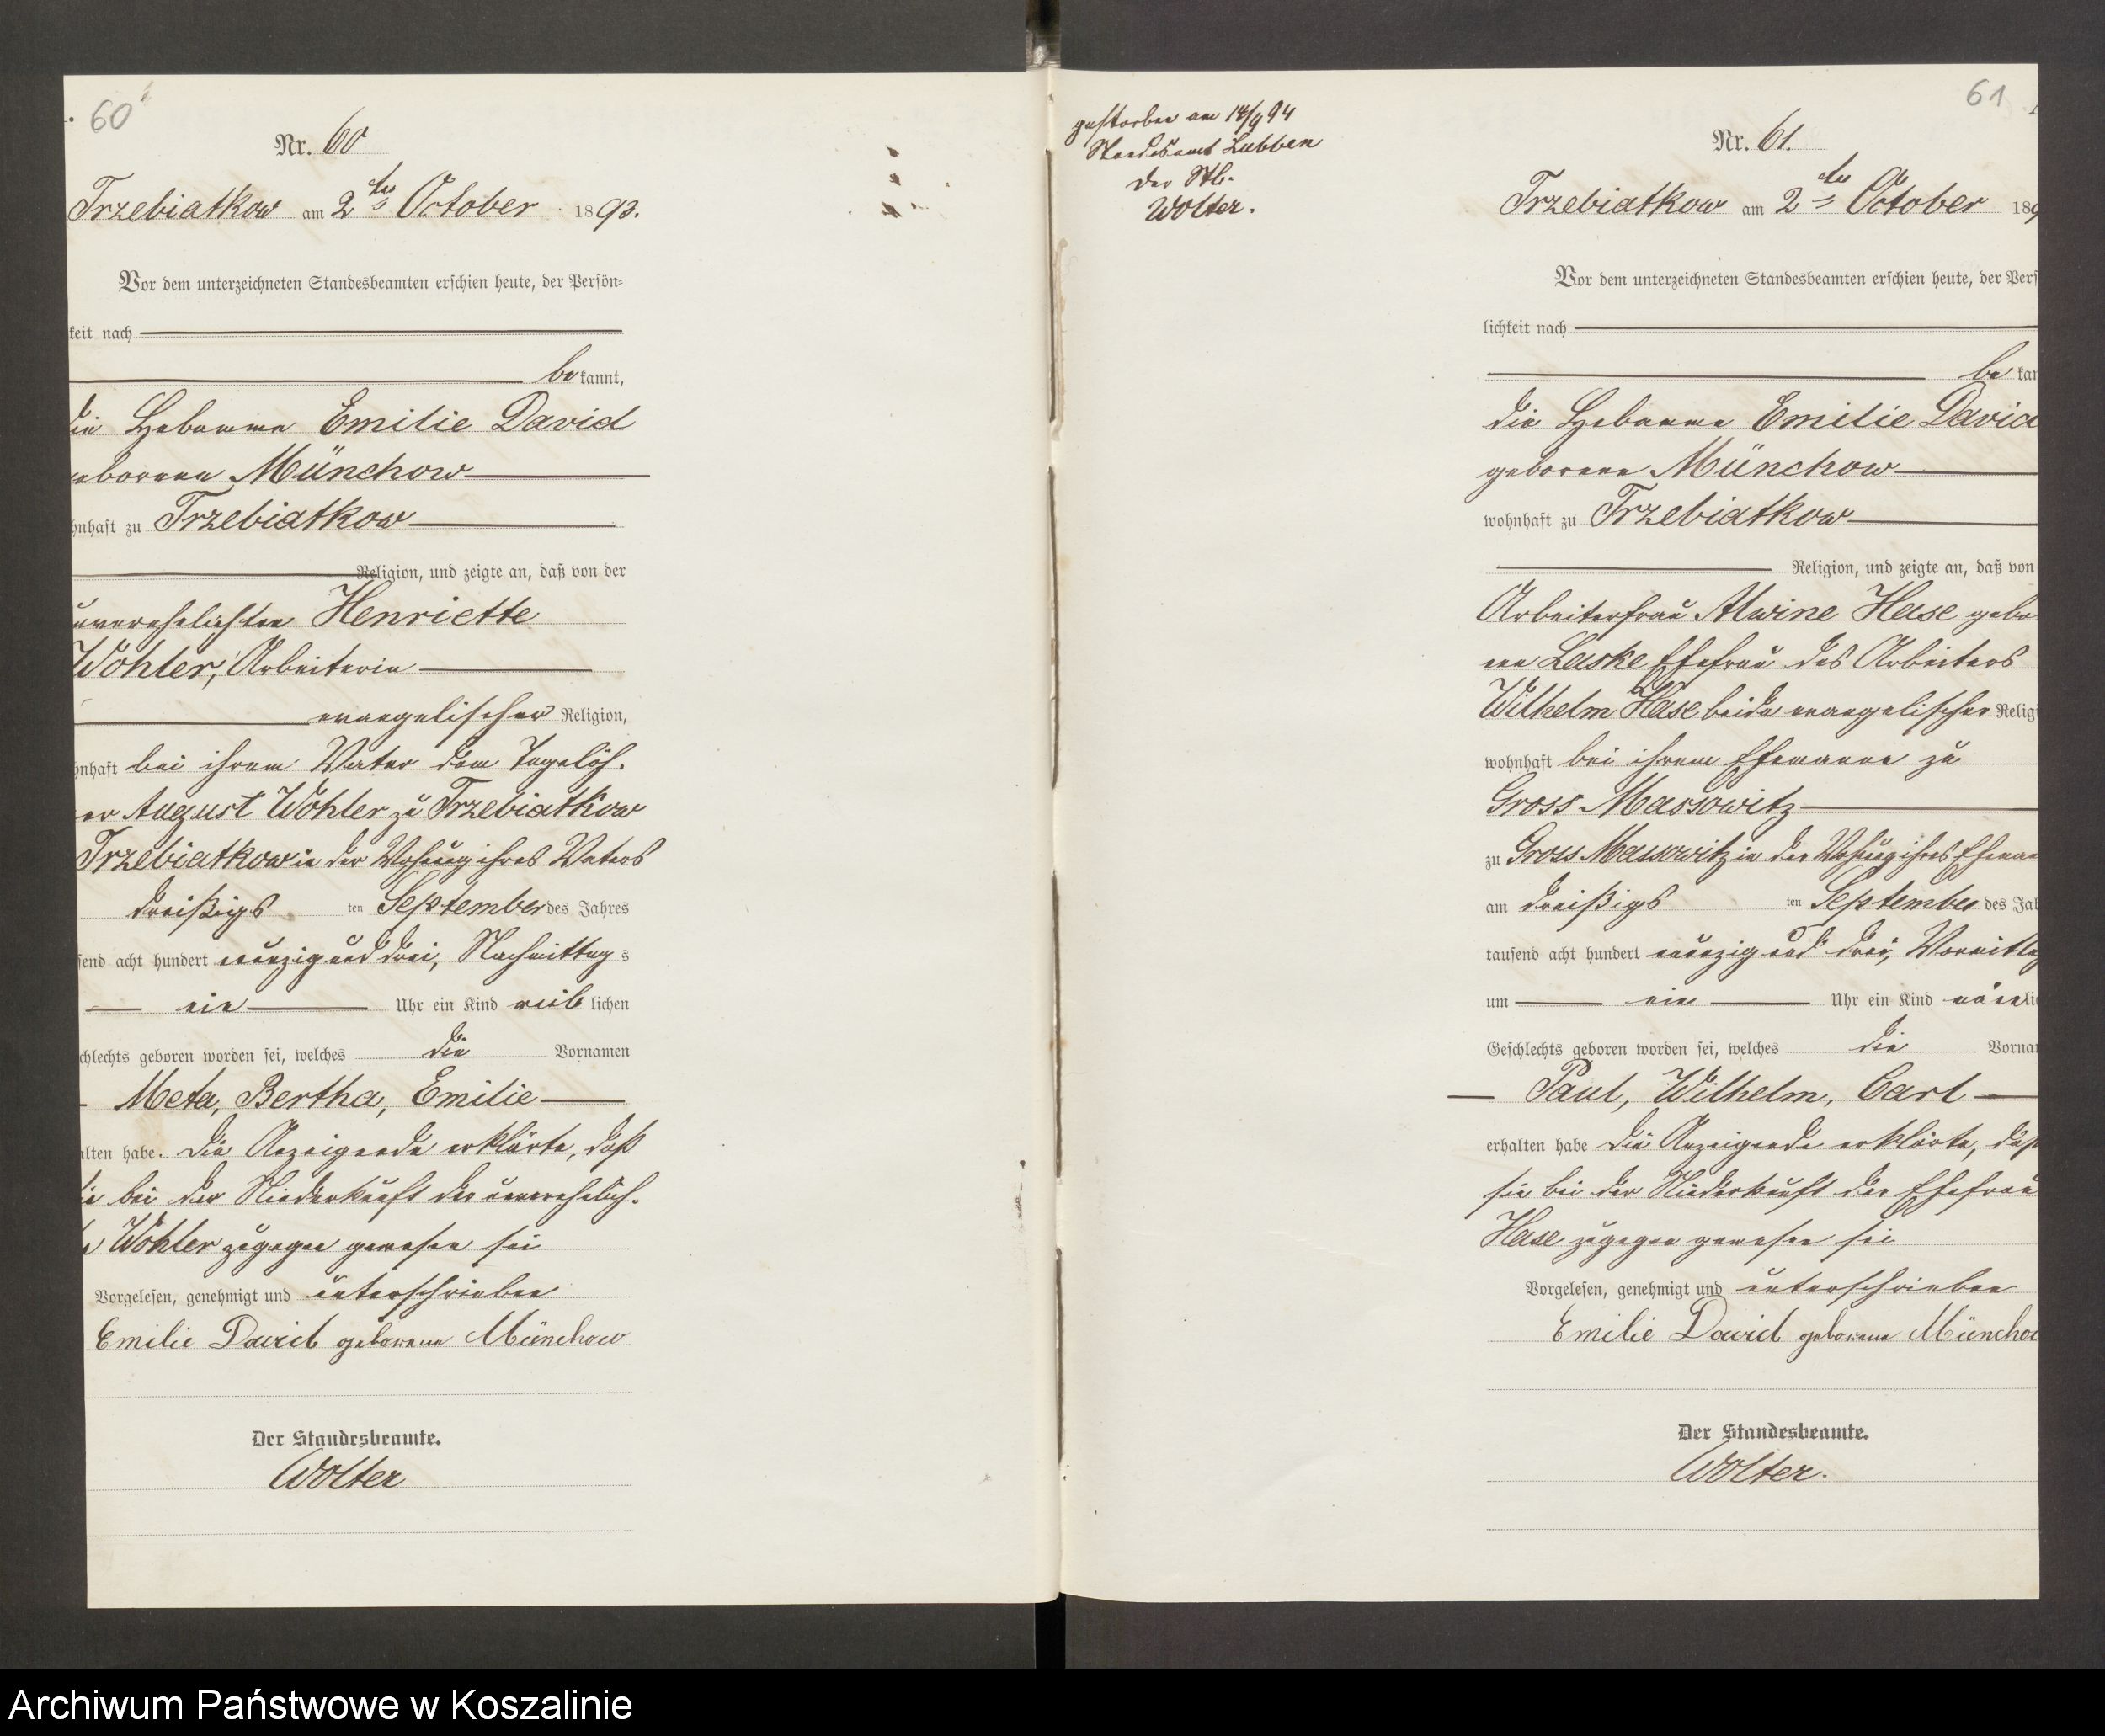 60
Nr. 60
Trzebiatkow am 2ten October 1893.
Vor dem unterzeichneten Standesbeamten erschien heute, der Persön-
keit nach
be kannt,
die Hebamme Emilie David
eborene Münchow
hnhaft zu Trzebiatkow
Religion, und zeigte an, daß von der
unverehelichten Henriette
Wöhler, Arbeiterin
evangelischer Religion,
hnhaft bei ihrem Vater dem Tagelöh-
er August Wöhler zu Trzebiatkow
Trzebiatkow in der Wohnung ihres Vaters
dreißigs ten September des Jahres
send acht hundert neunzig und drei, Nachmittag s
ein Uhr ein Kind weib lichen
chlechts geboren worden sei, welches die Vornamen
Meta, Bertha, Emilie
alten habe. Die Anzeigende erklärte, daß
sie bei der Niederkunft der unverehelich-
n Wöhler zugegen gewesen sei
Vorgelesen, genehmigt und unterschrieben
Emilie David geborene Münchow
Der Standesbeamte.
Wolter
gestorben am 14/9 94
Standesamt Lubben
Der Stb.
Wolter.
61
Nr. 61.
Trzebiatkow am 2ten October 189
Vor dem unterzeichneten Standesbeamten erschien heute, der Pers
lichkeit nach
be kan
die Hebamme Emilie David
geborene Münchow
wohnhaft zu Trzebiatkow
Religion, und zeigte an, daß von
Arbeiterfrau Alwine Hase gebo
ne Laske Ehefrau des Arbeiters
Wilhelm Hase beide evangelischer Relig
wohnhaft bei ihrem Ehemanne zu
Gross Massowitz
zu Gross Massowitz in der Wohnung ihres Eheman
am dreißigs ten September des Jal
tausend acht hundert neunzig und drei, Vormittag
um ein Uhr ein Kind männ li
Geschlechts geboren worden sei, welches die Vorna
Paul, Wilhelm, Carl
erhalten habe Die Anzeigende erklärte, daß
sie bei der Niederkunft der Ehefrau
Hase zugegen gewesen sei
Vorgelesen, genehmigt und unterschrieben
Emilie David geborene Müncho
Der Standesbeamte.
Wolter.
Archiwum Państwowe w Koszalinie